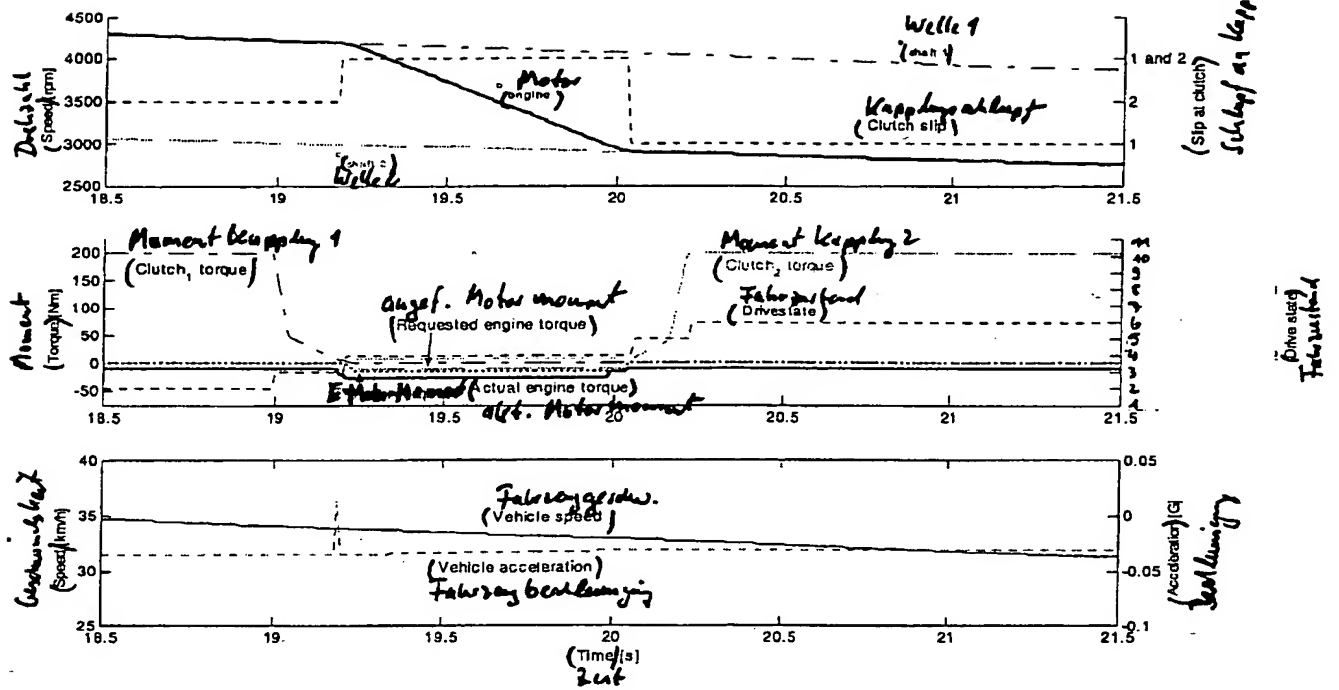 4500
4000
3500
3000
2500
Drehzahl
(Speed)[rpm]
Welle 1
(shaft 1)
Motor
(engine)
Kupplungsschlupf
(Clutch slip)
1 and 2
2
1
(Slip at clutch)
Schlupf an Kupp
18.5 19 19.5 20 20.5 21 21.5
200
150
100
50
0
-50
Moment
(Torque)[Nm]
Moment Kupplung 1
(Clutch1 torque)
angef. Motormoment
(Requested engine torque)
Moment Kupplung 2
(Clutch2 torque)
Fahrzustand
(Drivestate)
(Actual engine torque)
akt. Motormoment
11
10
9
8
7
6
5
4
3
2
1
(Drive state)
Fahrzustand
18.5 19 19.5 20 20.5 21 21.5
40
35
30
25
Geschwindigkeit
(Speed)[km/h]
Fahrzeuggeschw.
(Vehicle speed)
(Vehicle acceleration)
Fahrzeugbeschleunigung
0.05
0
-0.05
-0.1
(Acceleration)[G]
Beschleunigung
18.5 19 19.5 20 20.5 21 21.5
(Time)[s]
Zeit